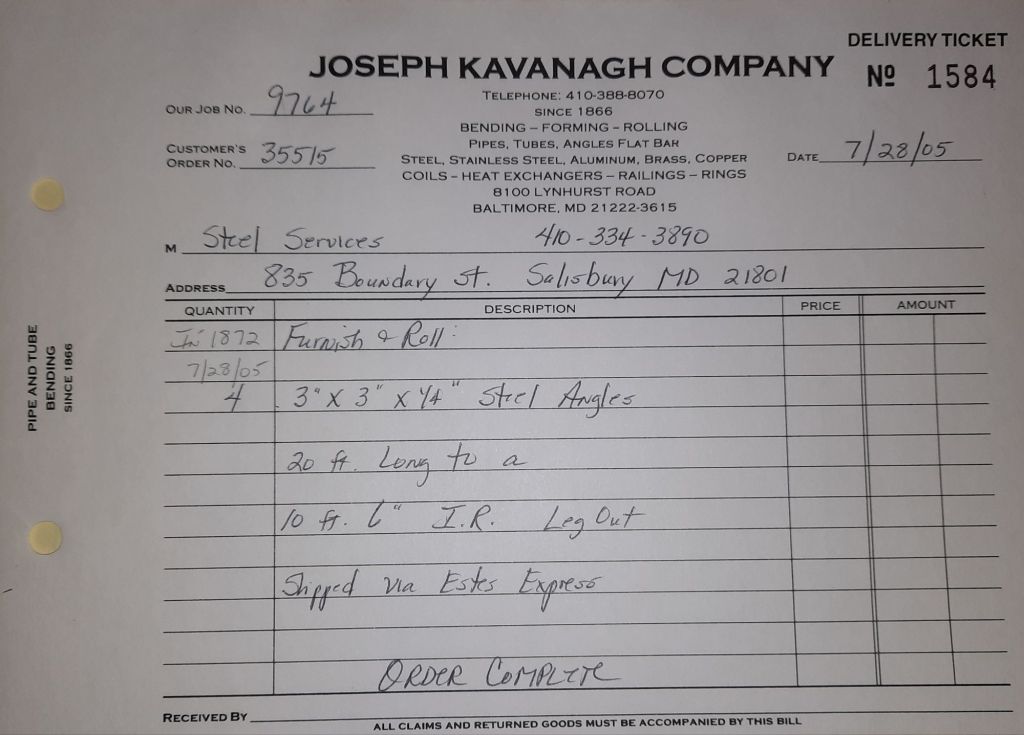 DELIVERY TICKET
JOSEPH KAVANAGH COMPANY
Nº 1584
TELEPHONE: 410-388-8070
OUR JOB NO. 9764
SINCE 1866
BENDING – FORMING – ROLLING
PIPES, TUBES, ANGLES FLAT BAR
CUSTOMER'S
ORDER NO. 35515
STEEL, STAINLESS STEEL, ALUMINUM, BRASS, COPPER
DATE 7/28/05
COILS – HEAT EXCHANGERS – RAILINGS – RINGS
8100 LYNHURST ROAD
BALTIMORE, MD 21222-3615
M Steel Services 410-334-3890
ADDRESS 835 Boundary St. Salisbury MD 21801
QUANTITY DESCRIPTION PRICE AMOUNT
In 1872 Furnish & Roll:
7/28/05
4 3" X 3" x 1/4" Steel Angles
20 ft. Long to a
10 ft. 6" I.R. Leg Out
Shipped via Estes Express
ORDER COMPLETE
RECEIVED BY
ALL CLAIMS AND RETURNED GOODS MUST BE ACCOMPANIED BY THIS BILL
PIPE AND TUBE
BENDING
SINCE 1866